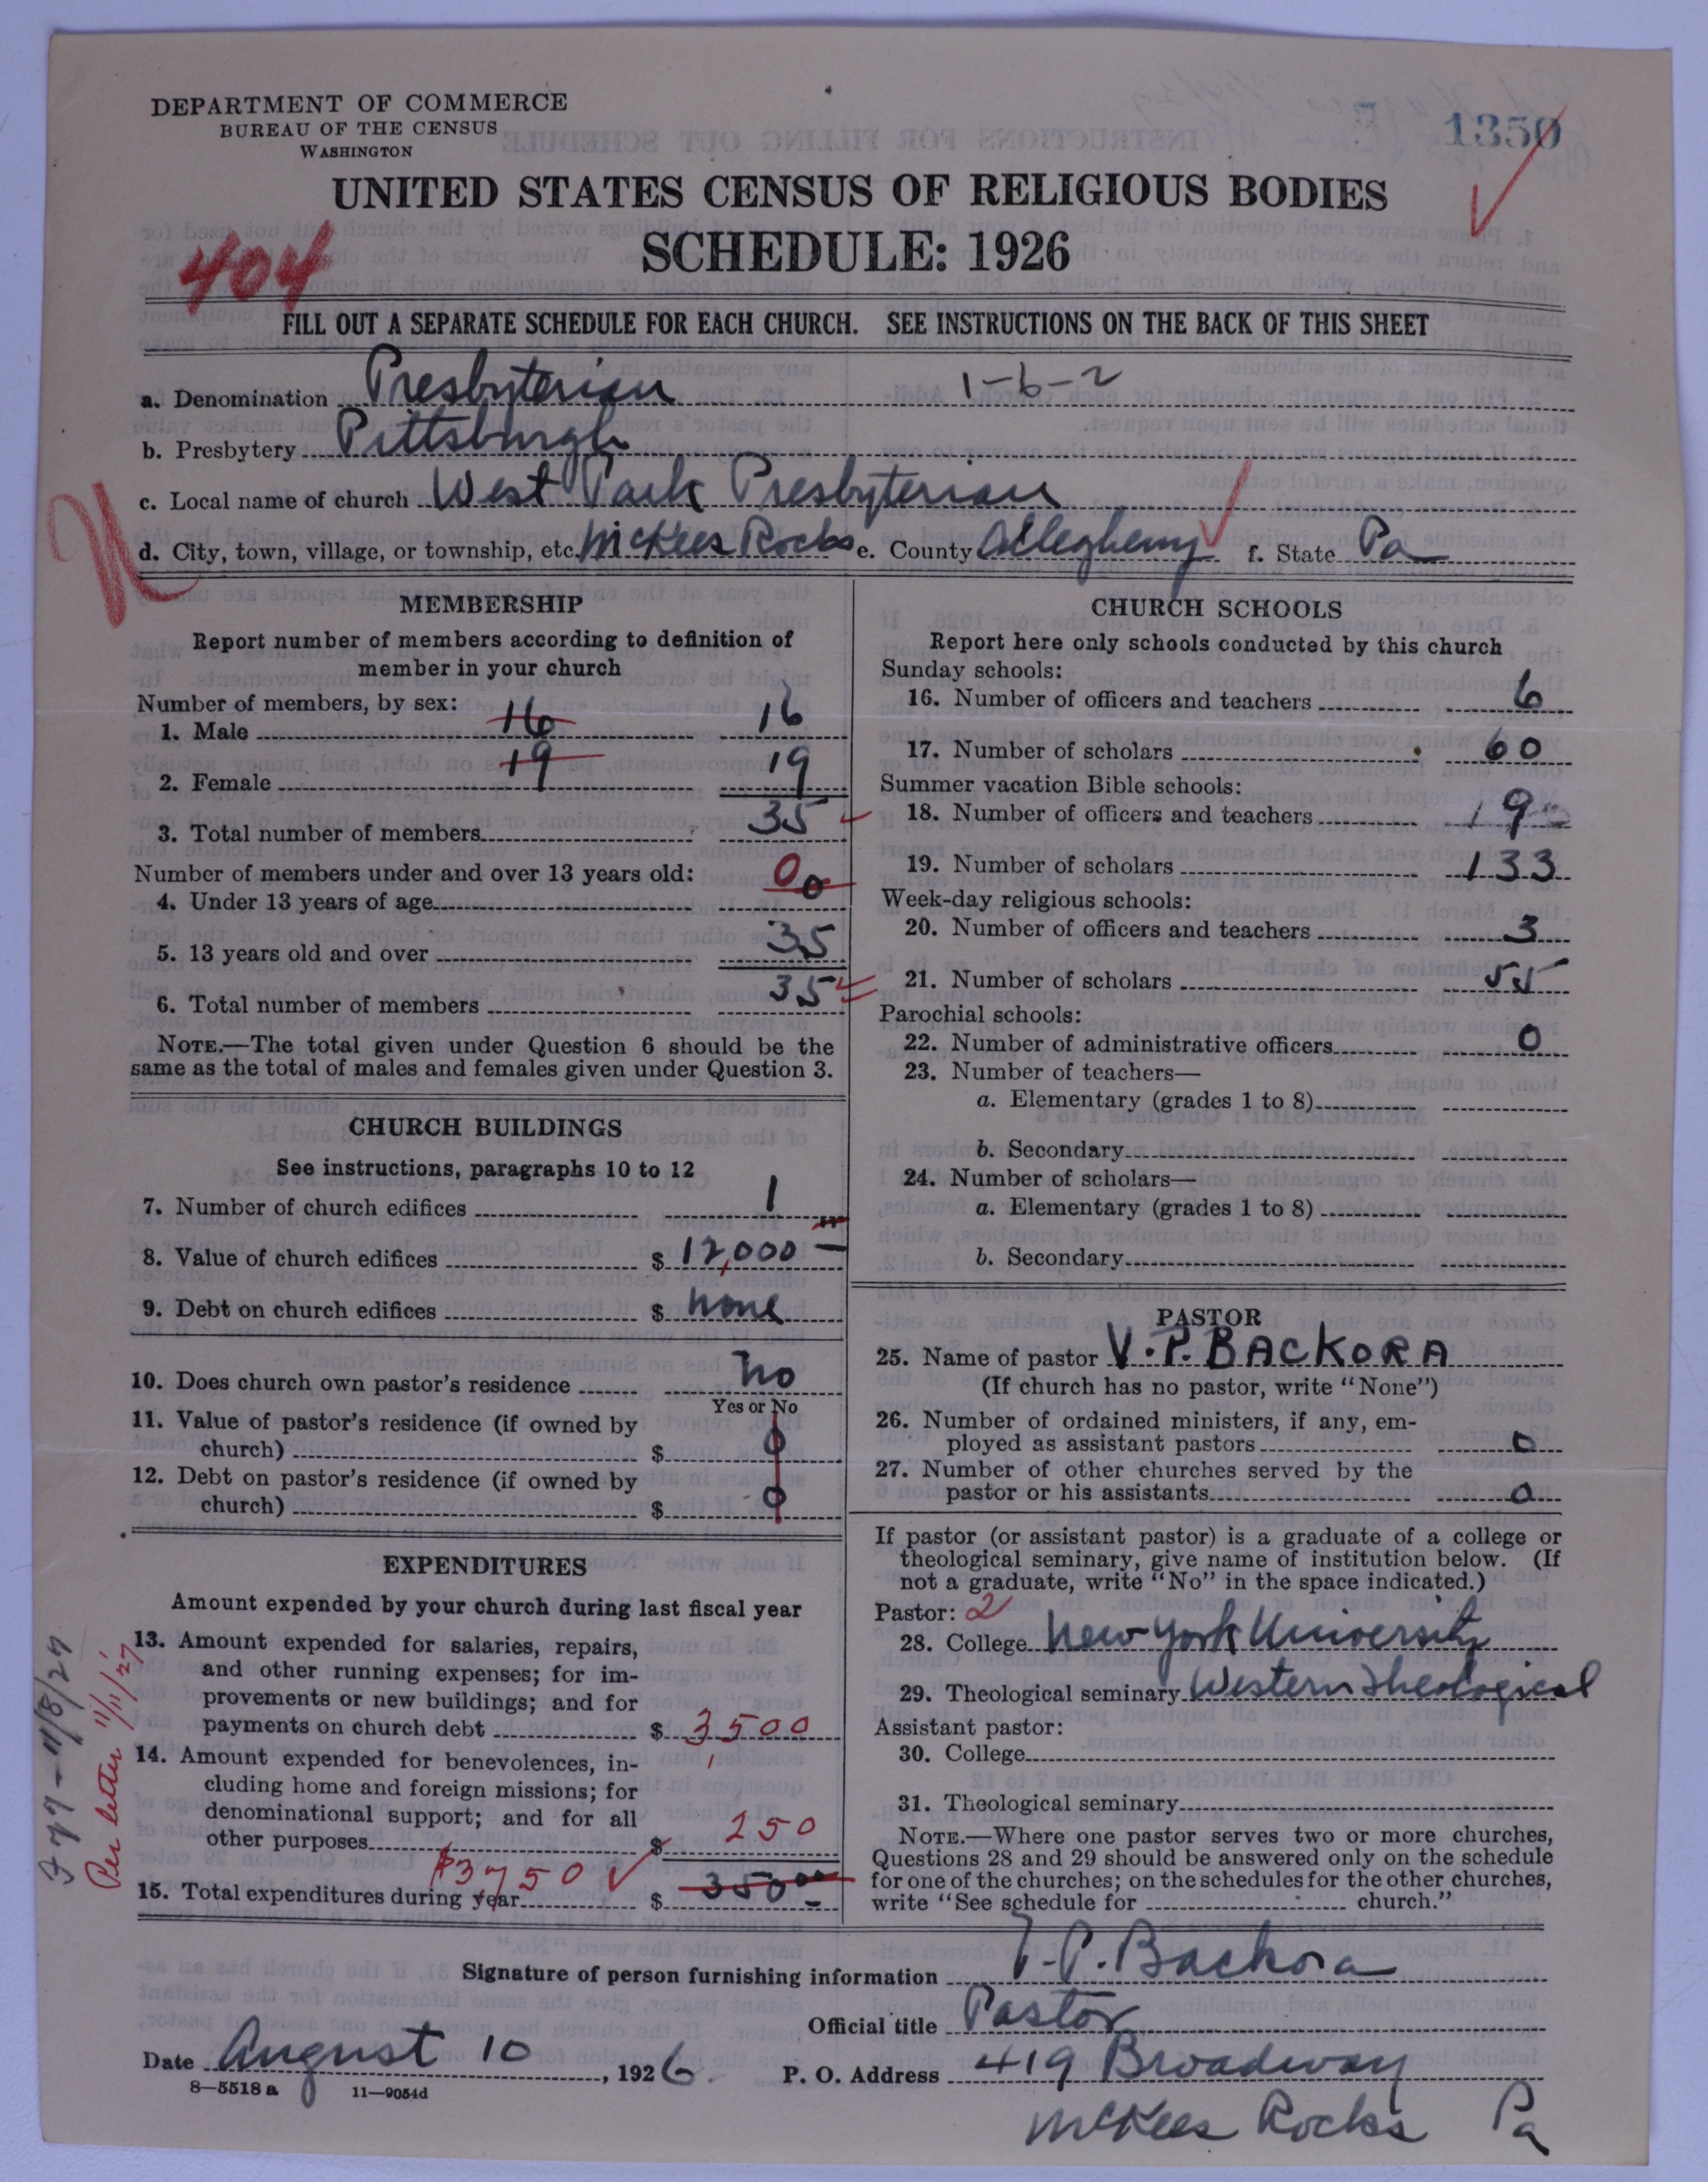 DEPARTMENT OF COMMERCE
BUREAU OF THE CENSUS
WASHINGTON
1350
UNITED STATES CENSUS OF RELIGIOUS BODIES
SCHEDULE: 1926
404
FILL OUT A SEPARATE SCHEDULE FOR EACH CHURCH. SEE INSTRUCTIONS ON THE BACK OF THIS SHEET
a. Denomination Presbyterian 1-6-2
b. Presbytery Pittsburgh
c. Local name of church West Park Presbyterian
d. City, town, village, or township, etc. McKees Rocks e. County Allegheny f. State Pa
MEMBERSHIP
Report number of members according to definition of
member in your church
Number of members, by sex:
1. Male 16 16
2. Female 19 19
3. Total number of members 35
Number of members under and over 13 years old:
4. Under 13 years of age 0 0
5. 13 years old and over 35
6. Total number of members 35
NOTE.—The total given under Question 6 should be the
same as the total of males and females given under Question 3.
CHURCH BUILDINGS
See instructions, paragraphs 10 to 12
7. Number of church edifices 1
8. Value of church edifices $ 12,000 —
9. Debt on church edifices $ none
10. Does church own pastor's residence no
Yes or No
11. Value of pastor's residence (if owned by
church) $ 0
12. Debt on pastor's residence (if owned by
church) $ 0
EXPENDITURES
Amount expended by your church during last fiscal year
13. Amount expended for salaries, repairs,
and other running expenses; for im-
provements or new buildings; and for
payments on church debt $ 3,500
14. Amount expended for benevolences, in-
cluding home and foreign missions; for
denominational support; and for all
other purposes $ 250
$3,750
15. Total expenditures during year $ 350 00
377-11/8/27
Per letter 11/11/27
CHURCH SCHOOLS
Report here only schools conducted by this church
Sunday schools:
16. Number of officers and teachers 6
17. Number of scholars 60
Summer vacation Bible schools:
18. Number of officers and teachers 19
19. Number of scholars 133
Week-day religious schools:
20. Number of officers and teachers 3
21. Number of scholars 55
Parochial schools:
22. Number of administrative officers 0
23. Number of teachers—
a. Elementary (grades 1 to 8)
b. Secondary
24. Number of scholars—
a. Elementary (grades 1 to 8)
b. Secondary
PASTOR
25. Name of pastor V. P. BACKORA
(If church has no pastor, write "None")
26. Number of ordained ministers, if any, em-
ployed as assistant pastors 0
27. Number of other churches served by the
pastor or his assistants 0
If pastor (or assistant pastor) is a graduate of a college or
theological seminary, give name of institution below. (If
not a graduate, write "No" in the space indicated.)
Pastor: 2
28. College New York University
29. Theological seminary Western Theological
Assistant pastor:
30. College
31. Theological seminary
NOTE.—Where one pastor serves two or more churches,
Questions 28 and 29 should be answered only on the schedule
for one of the churches; on the schedules for the other churches,
write "See schedule for church."
Signature of person furnishing information V. P. Backora
Official title Pastor
Date August 10, 1926 P. O. Address 419 Broadway
8—5518 a 11—9054d
McKees Rocks Pa